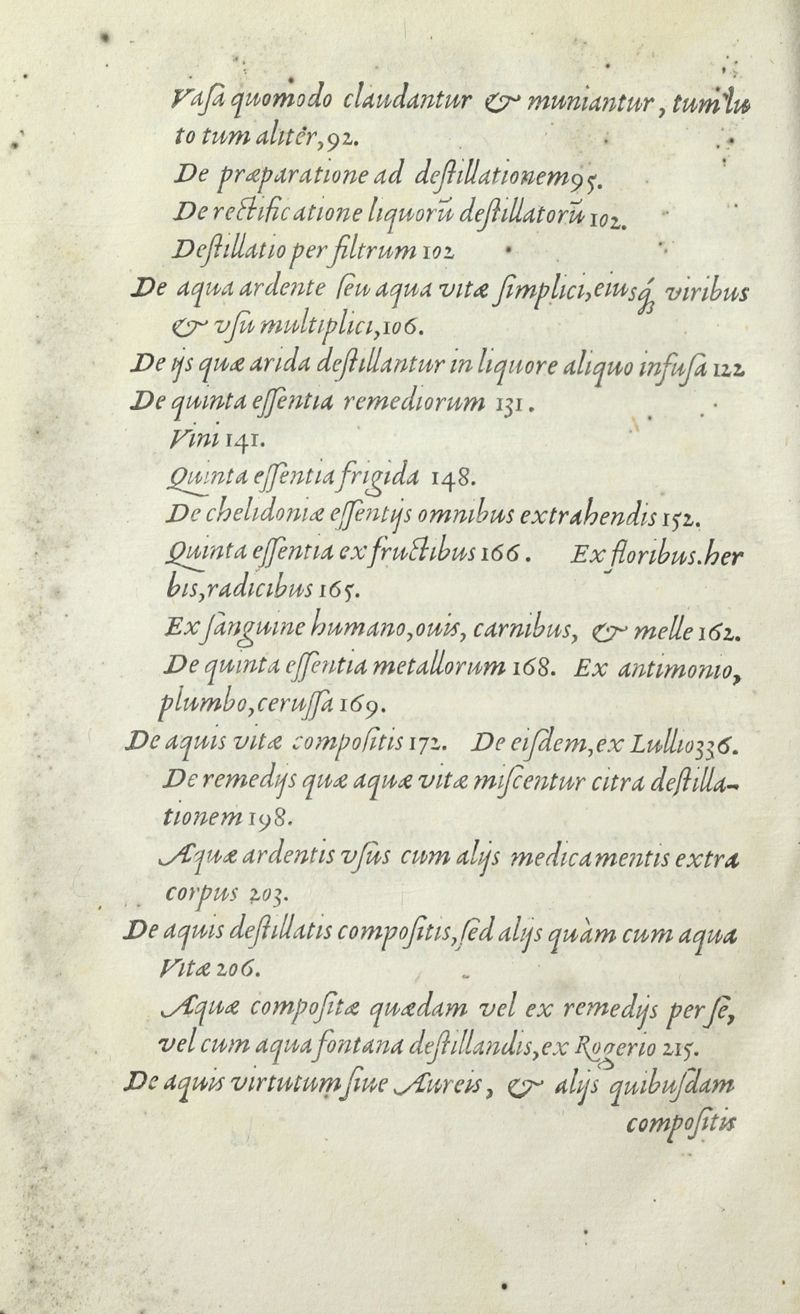 Vaſa quomodo claudantur & muniantur, tum lu
to tum alitèr, 92.
De præparatione ad deſtillationem 95.
De rectificatione liquorũ deſtillatorũ 102.
Deſtillatio per filtrum 102
De aqua ardente ſeu aqua vitæ ſimplici, eiusq́; viribus
& vſu multiplici, 106.
De ijs quæ arida deſtillantur in liquore aliquo infuſa 122
De quinta eſſentia remediorum 131.
Vini 141.
Quinta eſſentia frigida 148.
De chelidoniæ eſſentijs omnibus extrahendis 152.
Quinta eſſentia ex fructibus 166. Ex floribus. her
bis, radicibus 165.
Ex ſanguine humano, ouis, carnibus, & melle 162.
De quinta eſſentia metallorum 168. Ex antimonio,
plumbo, ceruſſa 169.
De aquis vitæ compoſitis 172. De eiſdem, ex Lullio 336.
De remedijs quæ aquæ vitæ miſcentur citra deſtilla-
tionem 198.
Aquæ ardentis vſus cum alijs medicamentis extra
corpus 203.
De aquis deſtillatis compoſitis, ſed alijs quàm cum aqua
Vitæ 206.
Aquæ compoſitæ quædam vel ex remedijs per ſe,
vel cum aqua fontana deſtillandis, ex Rogerio 215.
De aquis virtutum ſiue Aureis, & alijs quibuſdam
compoſitis